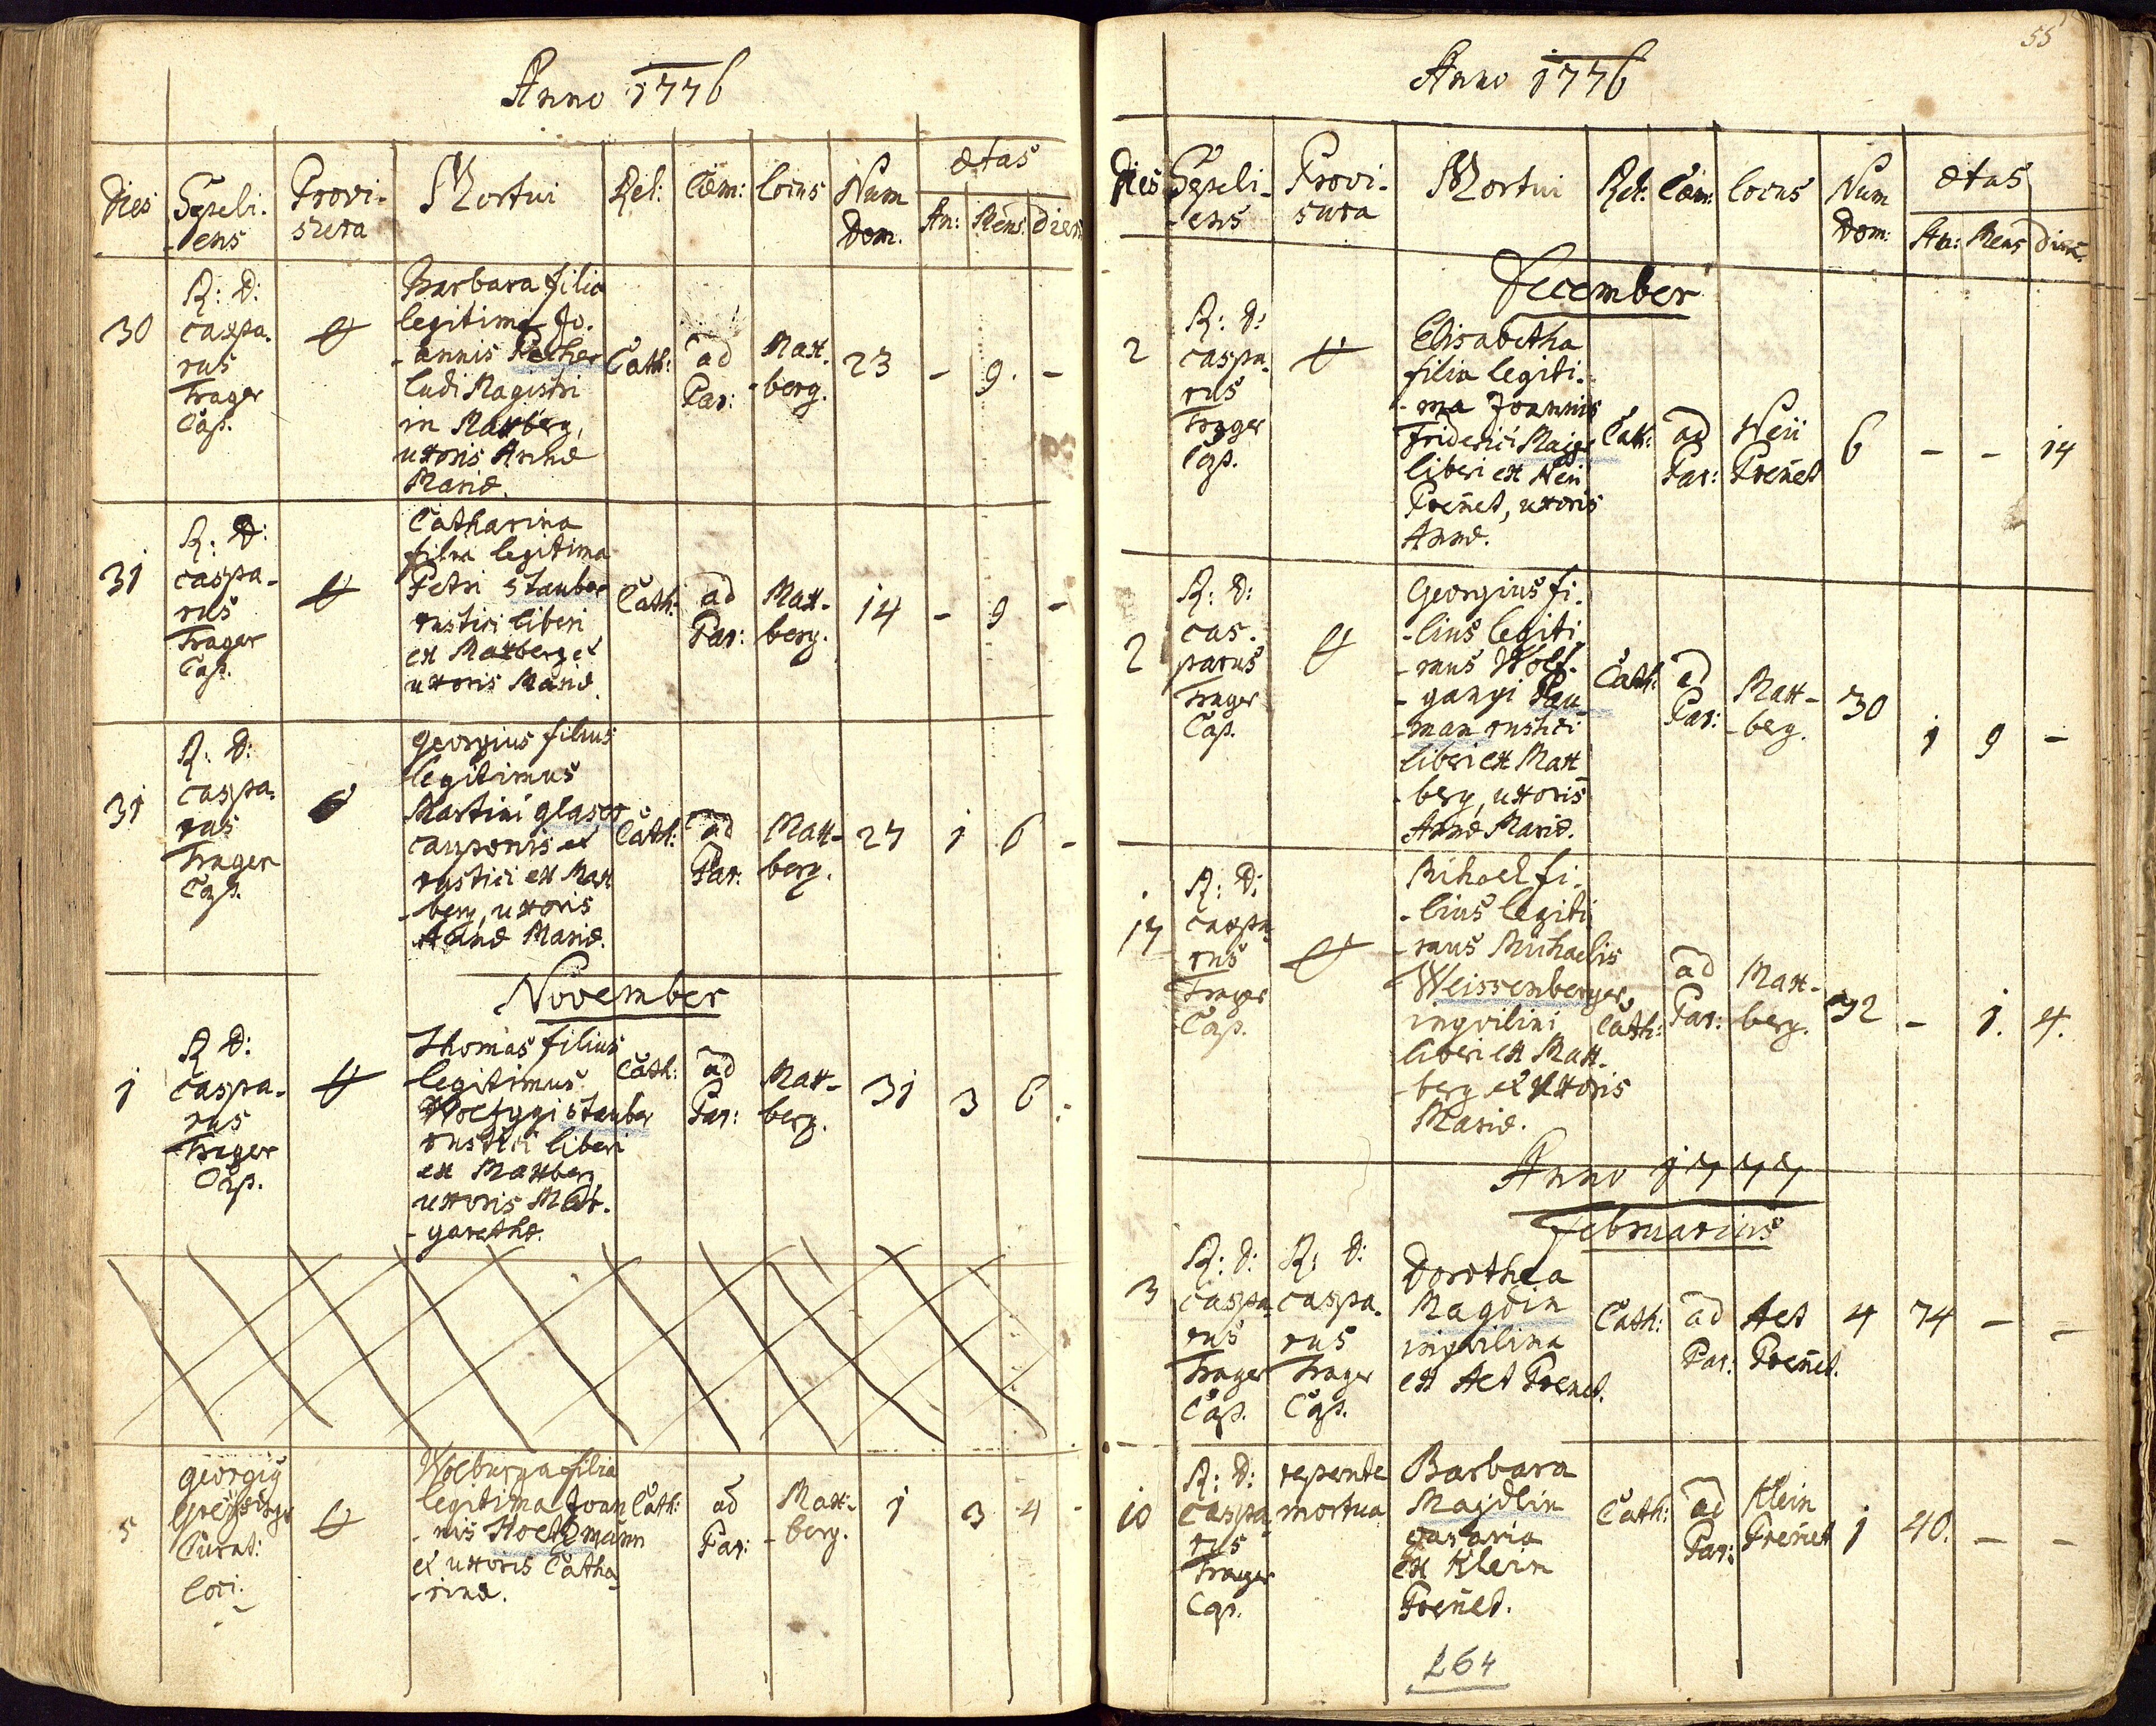 Anno 1776
Dies
Sepeli-
-ens
Provi-
sura
Mortui
Rel:
Cœm:
locus
Num
Dom.
ætas
An:
Mens.
dierum
30
R: D:
caspa-
rus
Trager
Cap.
Barbara filia
legitima Jo-
-annis Pecher
ludi Magistri
in Maxberg,
uxoris Annæ
Mariæ.
Cath:
ad
Par:
Max-
-berg.
23
-
9.
-
31
R: D:
caspa-
rus
Trager
Cap.
Catharina
filia legitima
Petri Stauber
rustici liberi
ex Maxberg et
uxoris Mariæ.
Cath:
ad
Par:
Max-
berg.
14
-
9
-
31
R: D:
caspa-
rus
Trager
Cap.
Georgius filius
legitimus
Martini glaser
cauponis et
rustici ex Max
-berg, uxoris
Annæ Mariæ.
Cath:
ad
Par:
Max-
berg.
27
1
6
-
November
1
R D:
caspa-
rus
Trager
Cap.
Thomas filius
legitimus
Wolfggi Stauber
rustici liberi
ex Maxberg
uxoris Mar-
-garethæ.
Cath:
ad
Par:
Max-
berg.
31
3
6
-
5
georgig
Curat:
loci.
Wolburga filia
legitima Joan
-nis Holtzmann
et uxoris Catha
-rinæ.
Cath:
ad
Par:
Max-
-berg.
1
3
4
-
55
Anno 1776
Dies
Sepeli-
-ens
Provi-
sura
Mortui
Rel:
Cœm:
locus
Num
Dom:
ætas
An:
Mens
dier.
December
2
R: D:
caspa-
rus
Trager
Cap.
Elisabetha
filia legiti-
-ma Joannis
Friderici Majer
liberi ex Neü
Prennet, uxoris
Annæ.
Cath:
ad
Par:
Neü
Preñet
6
-
-
14
2
R: D:
cas-
parus
Trager
Cap.
Georgius fi-
-lius legiti
-mus Wolf-
-gangi Pau
-man rustici
liberi ex Max
-berg, uxoris
Annæ Mariæ.
Cath:
ad
Par:
Max-
-berg.
30
1
9
-
17
R: D:
caspa
rus
Trager
Cap.
Mihael fi-
-lius legiti
-mus Michaelis
Weissemberger,
inqvilini
liberi ex Max-
-berg et uxoris
Mariæ.
Cath:
ad
Par:
Max-
berg.
32
-
1.
4.
Anno 1777
Februarius
3
R: D:
caspa-
rus
Trager
Cap.
R: D:
caspa-
rus
Trager
Cap.
Dorothea
Magdin
inqvilina
ex Alt Prenet.
Cath:
ad
Par:
Alt
Preñet.
4
74
-
-
10
R: D:
caspa
rus
Trager
Cap.
repente
mortua
Barbara
Majdlin
ex Klein
Preñet.
Cath:
ad
Par:
Klein
Preñet
1
40.
-
-
264